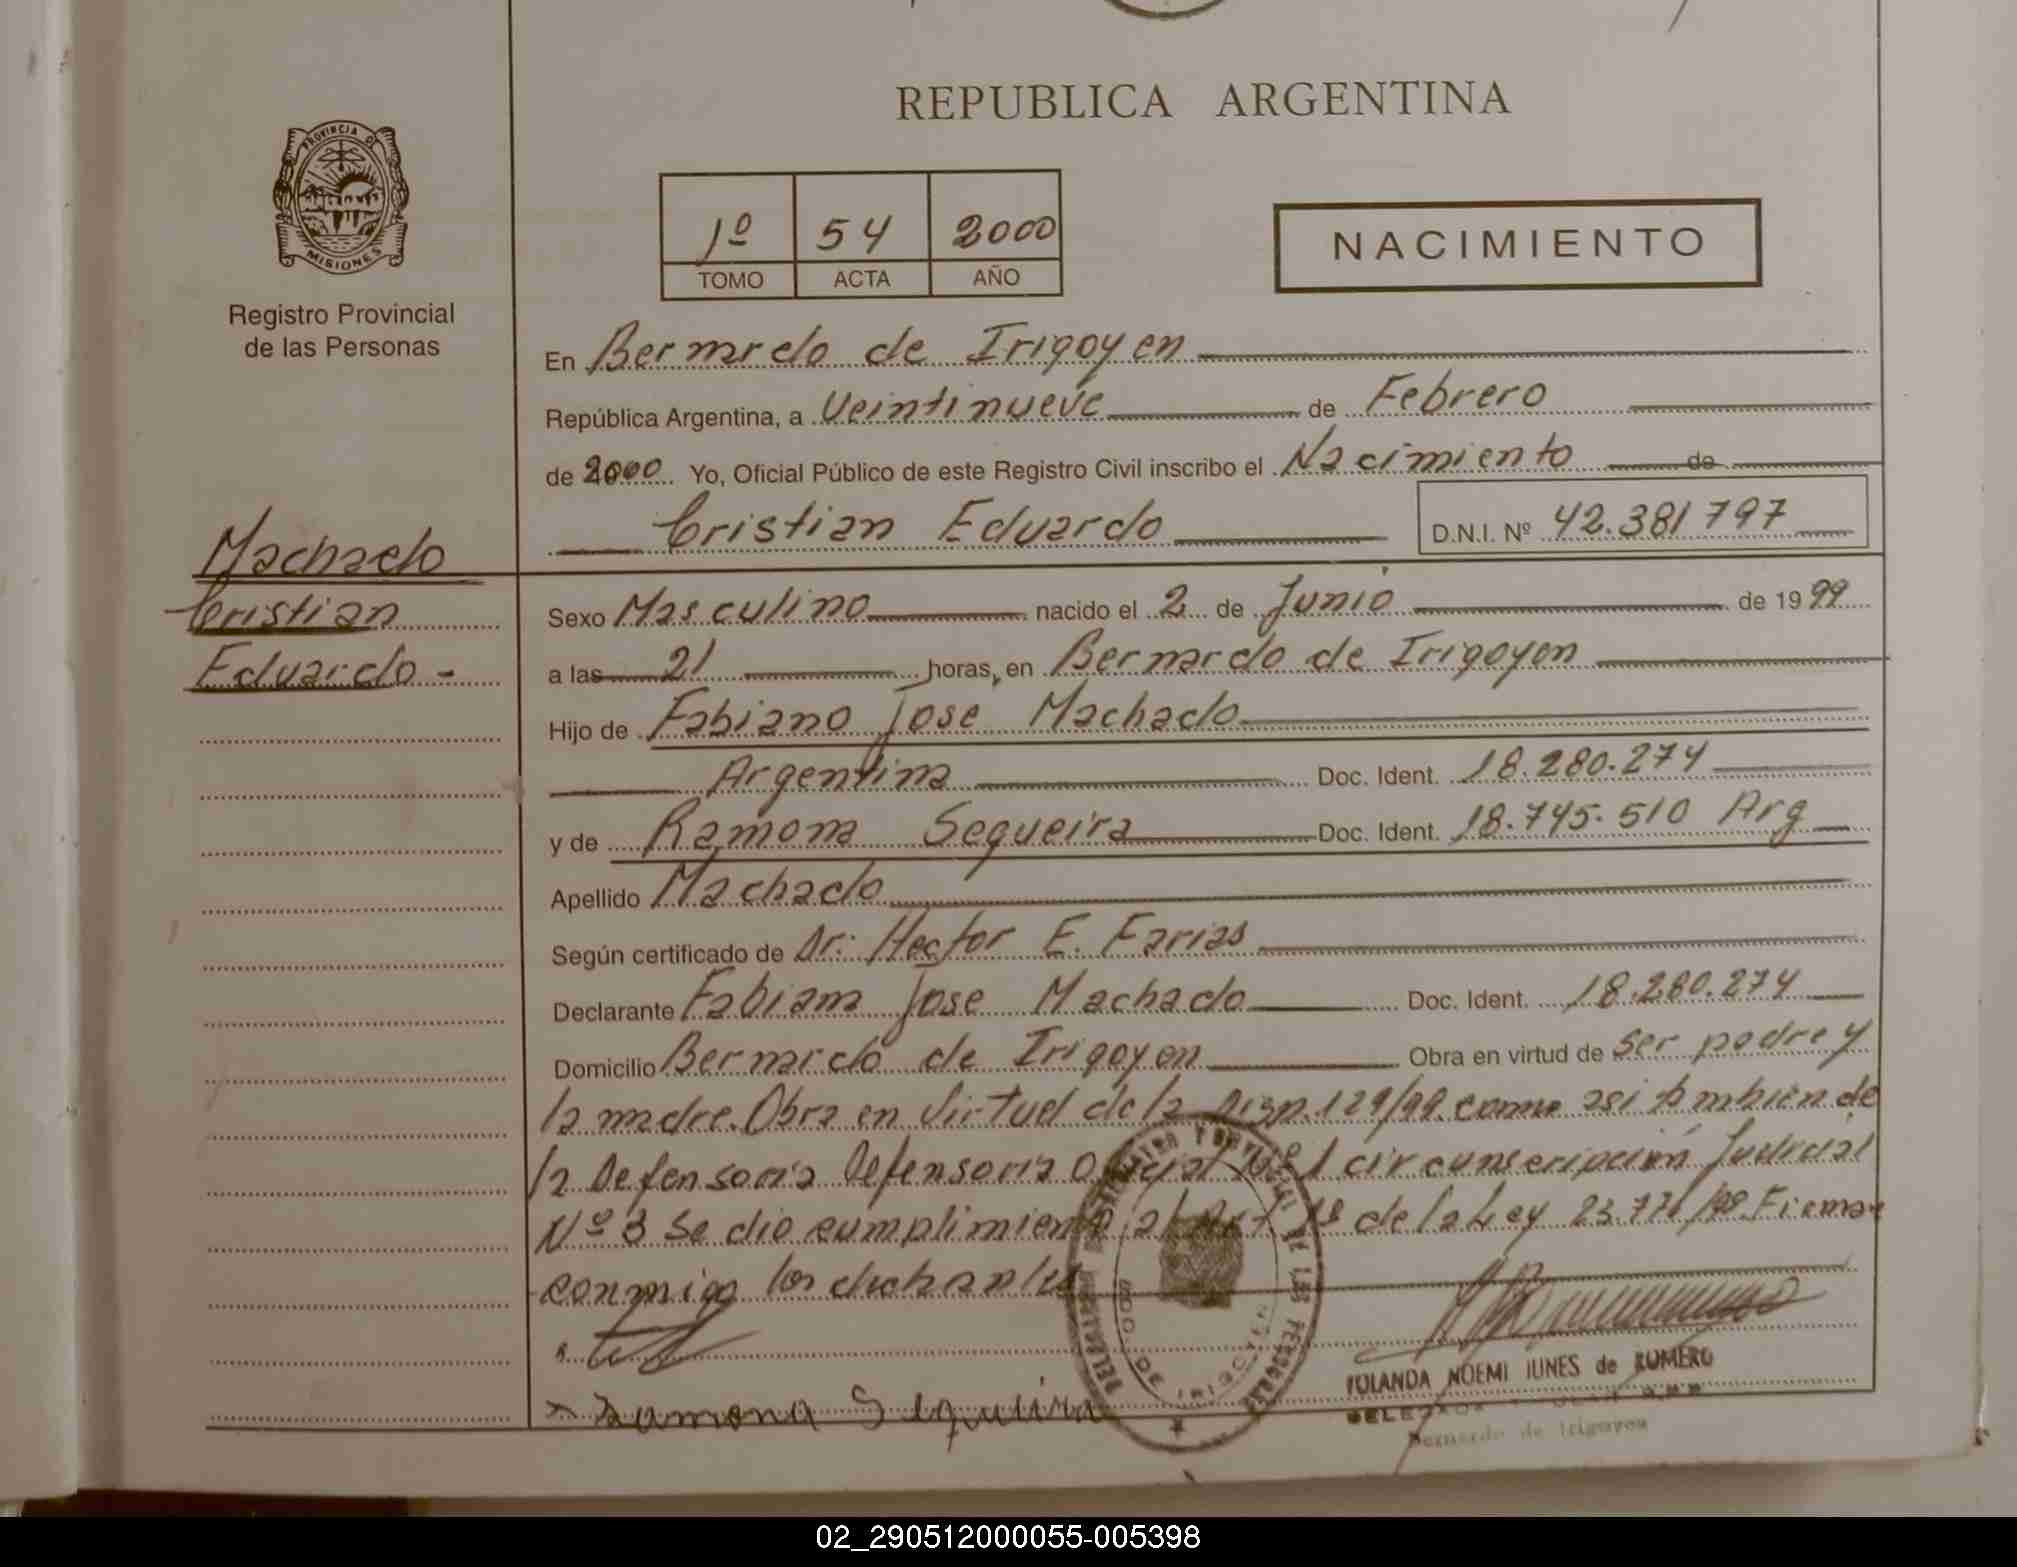 REPUBLICA ARGENTINA
PROVINCIA DE
MISIONES
Registro Provincial
de las Personas
1º 54 2000
TOMO ACTA AÑO
NACIMIENTO
En Bernardo de Irigoyen
República Argentina, a Veintinueve de Febrero
de 2000 Yo, Oficial Público de este Registro Civil inscribo el Nacimiento de
Cristian Eduardo D.N.I. Nº 42.381797
Machado
Cristian
Eduardo -
Sexo Masculino nacido el 2 de Junio de 1999
a las 21 horas, en Bernardo de Irigoyen
Hijo de Fabiano Jose Machado
Argentina Doc. Ident. 18.280.274
y de Ramona Sequeira Doc. Ident. 18.745.510 Arg
Apellido Machado
Según certificado de Dr: Hector E. Farias
Declarante Fabiano Jose Machado Doc. Ident. 18.280.274
Domicilio Bernardo de Irigoyen Obra en virtud de ser padre y
la madre. Obra en Virtud de la Disp. 129/99. como asi tambien de
la Defensoria Defensoria Oficial Nº 1 circunscripción Judicial
Nº 3 Se dio cumplimiento al Art 1º de la Ley 23.776/90. Firman
conmigo los
x Ramona Sequeira
DE IRIGOYEN
YOLANDA NOEMI IUNES de ROMERO
Bernardo de Irigoyen
02_290512000055-005398